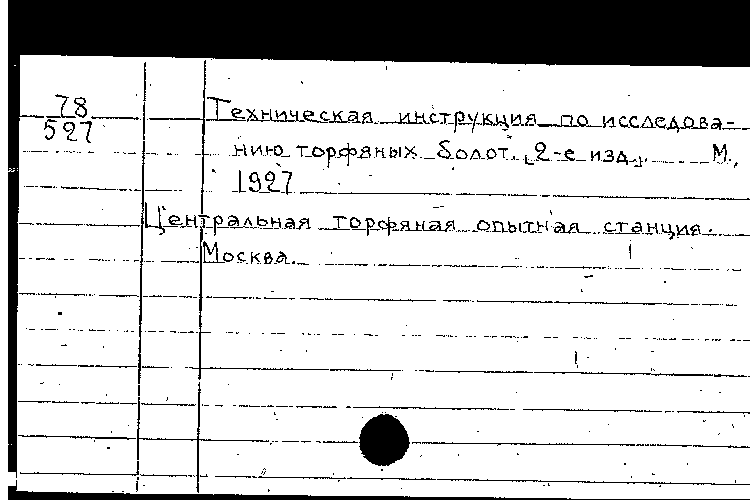 78
527
Техническая инструкция по исследова-
нию торфяных болот. [2-е изд.]. М.,
1927
Центральная торфяная опытная станция.
Москва.